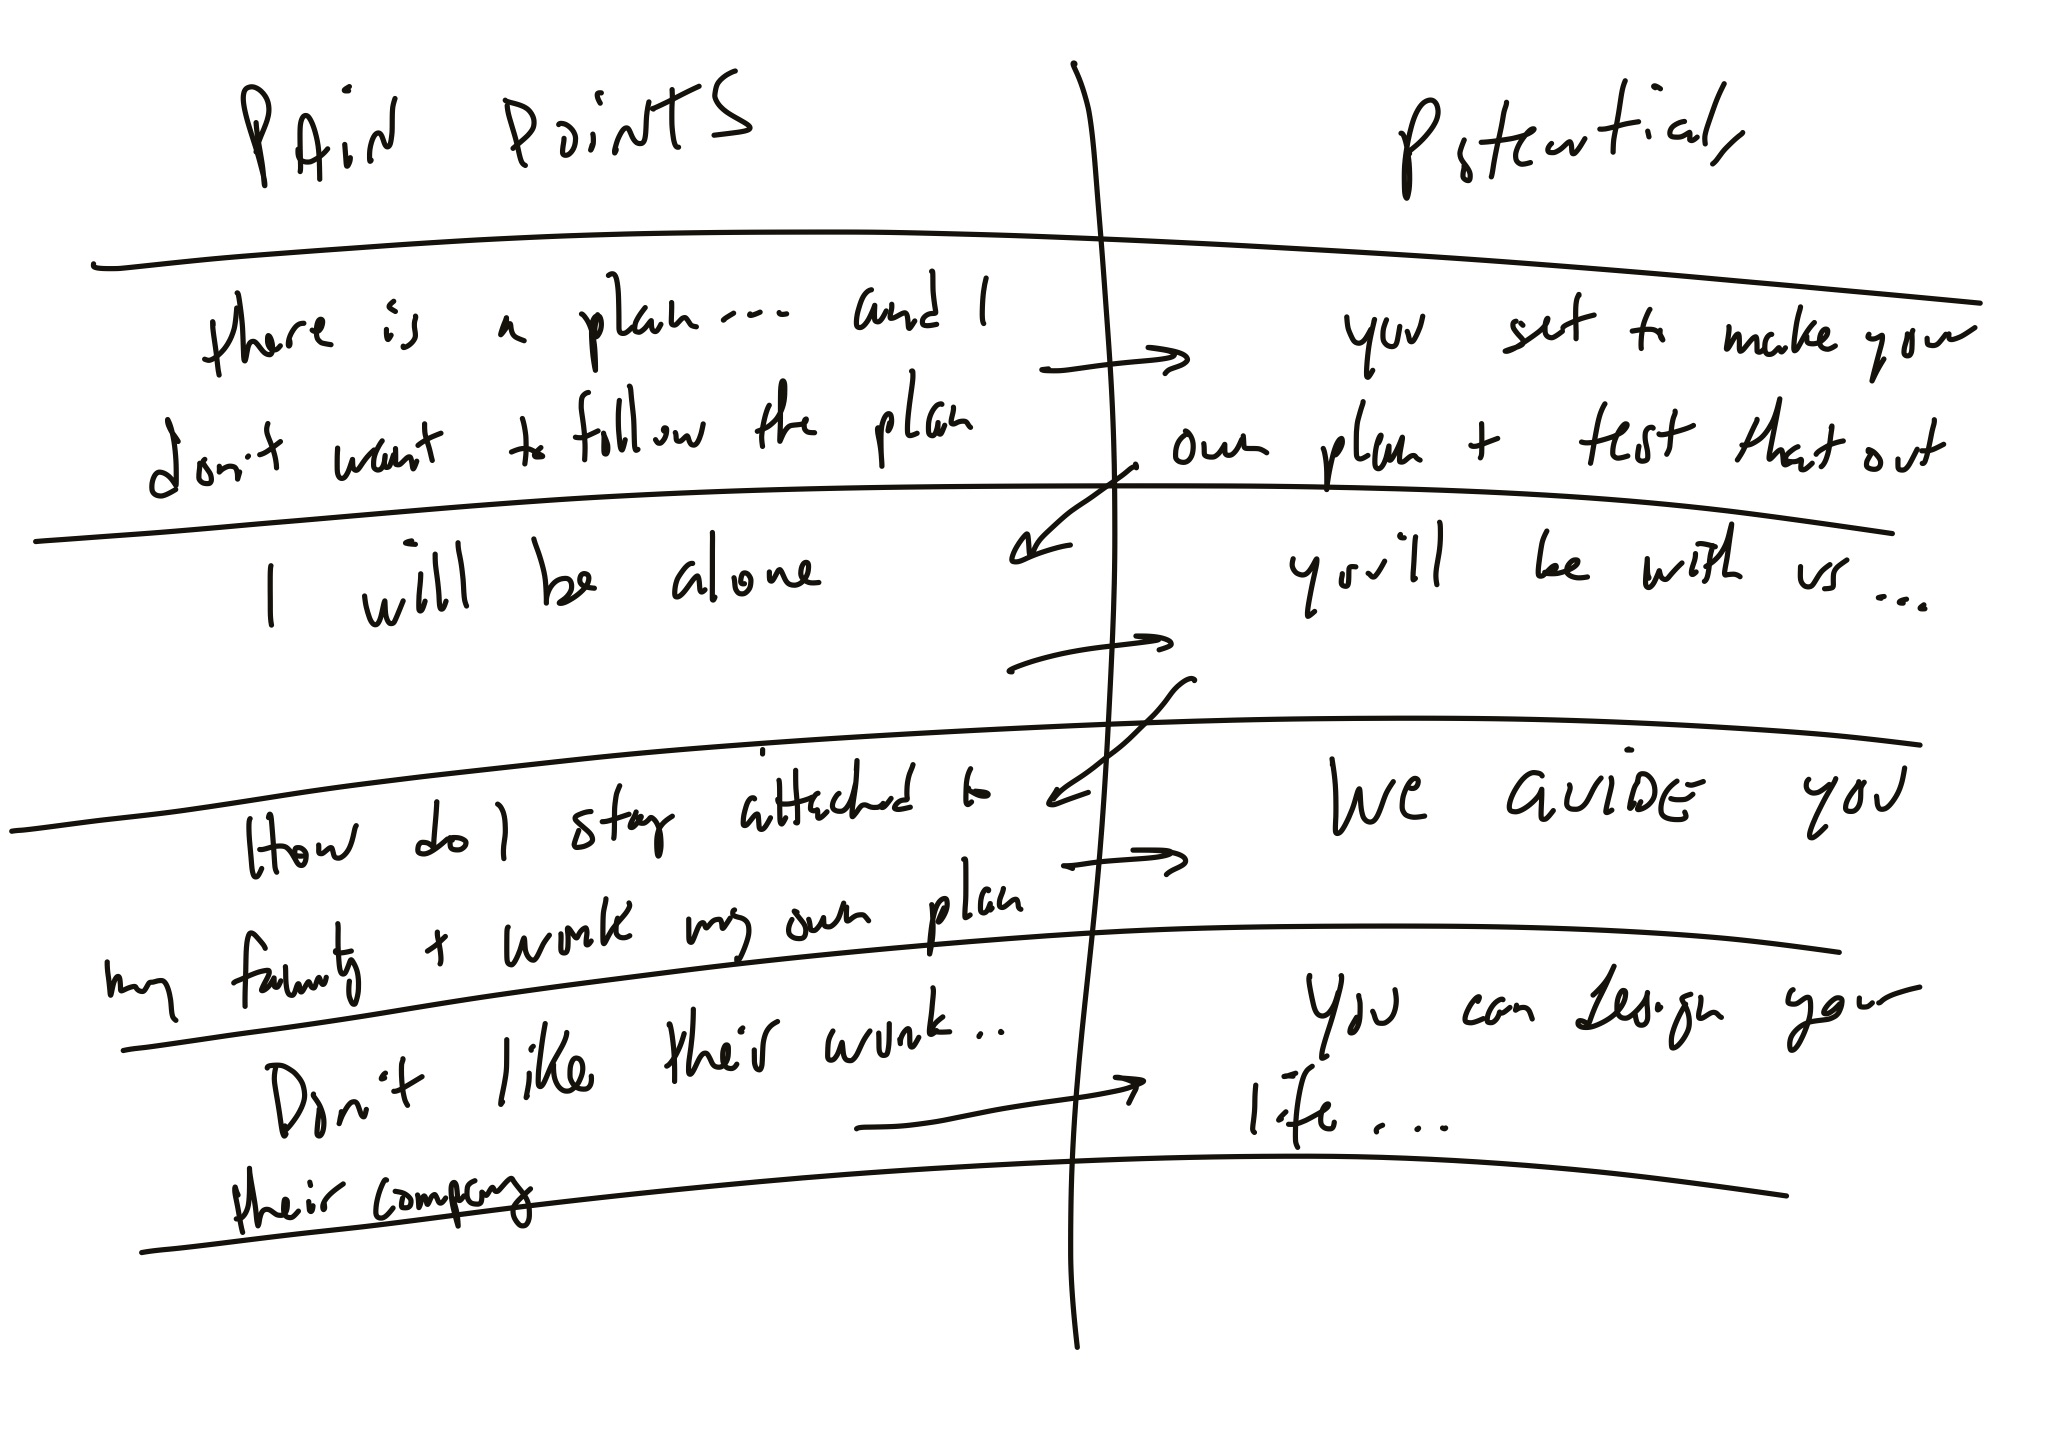 PAiN POiNTS
Potential,
there is a plan... and I
don't want to follow the plan
you set to make your
own plan + test that out
I will be alone
you'll be with us...
How do I stay attached to
my family + work my own plan
We GUiDE you
Don't like their work..
their company
You can design your
life...